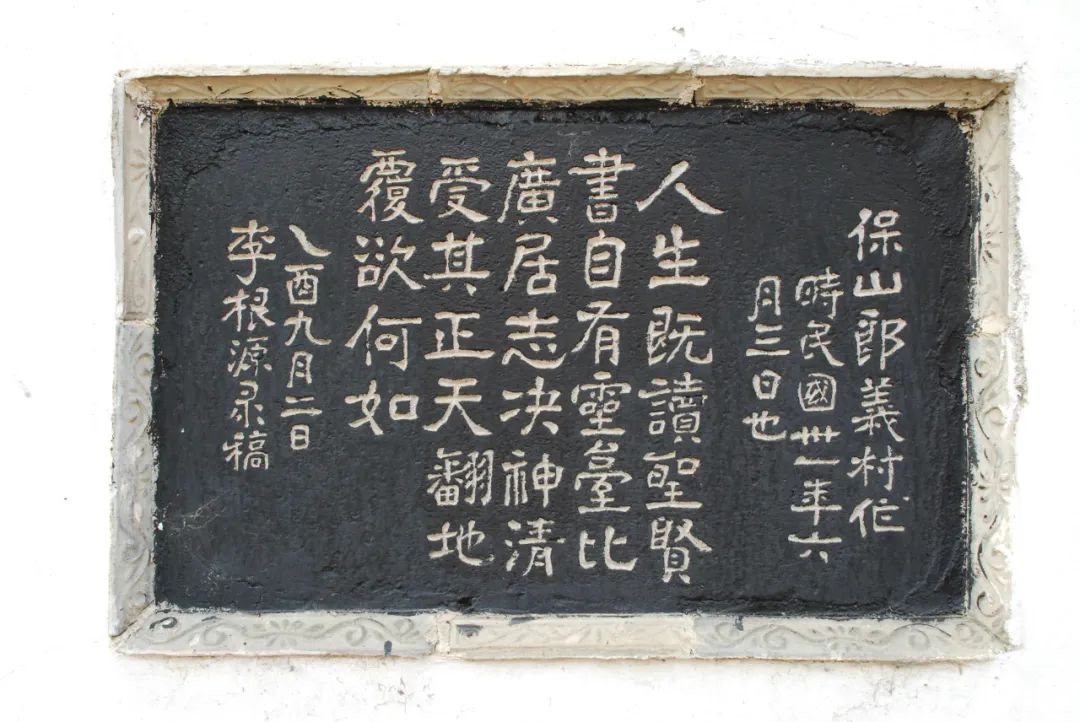 保山郎義村作
時民國卅一年六
月三日也
人生既讀聖賢
書自有靈臺比
廣居志決神清
受其正天翻地
覆欲何如
乙酉九月二日
李根源录稿